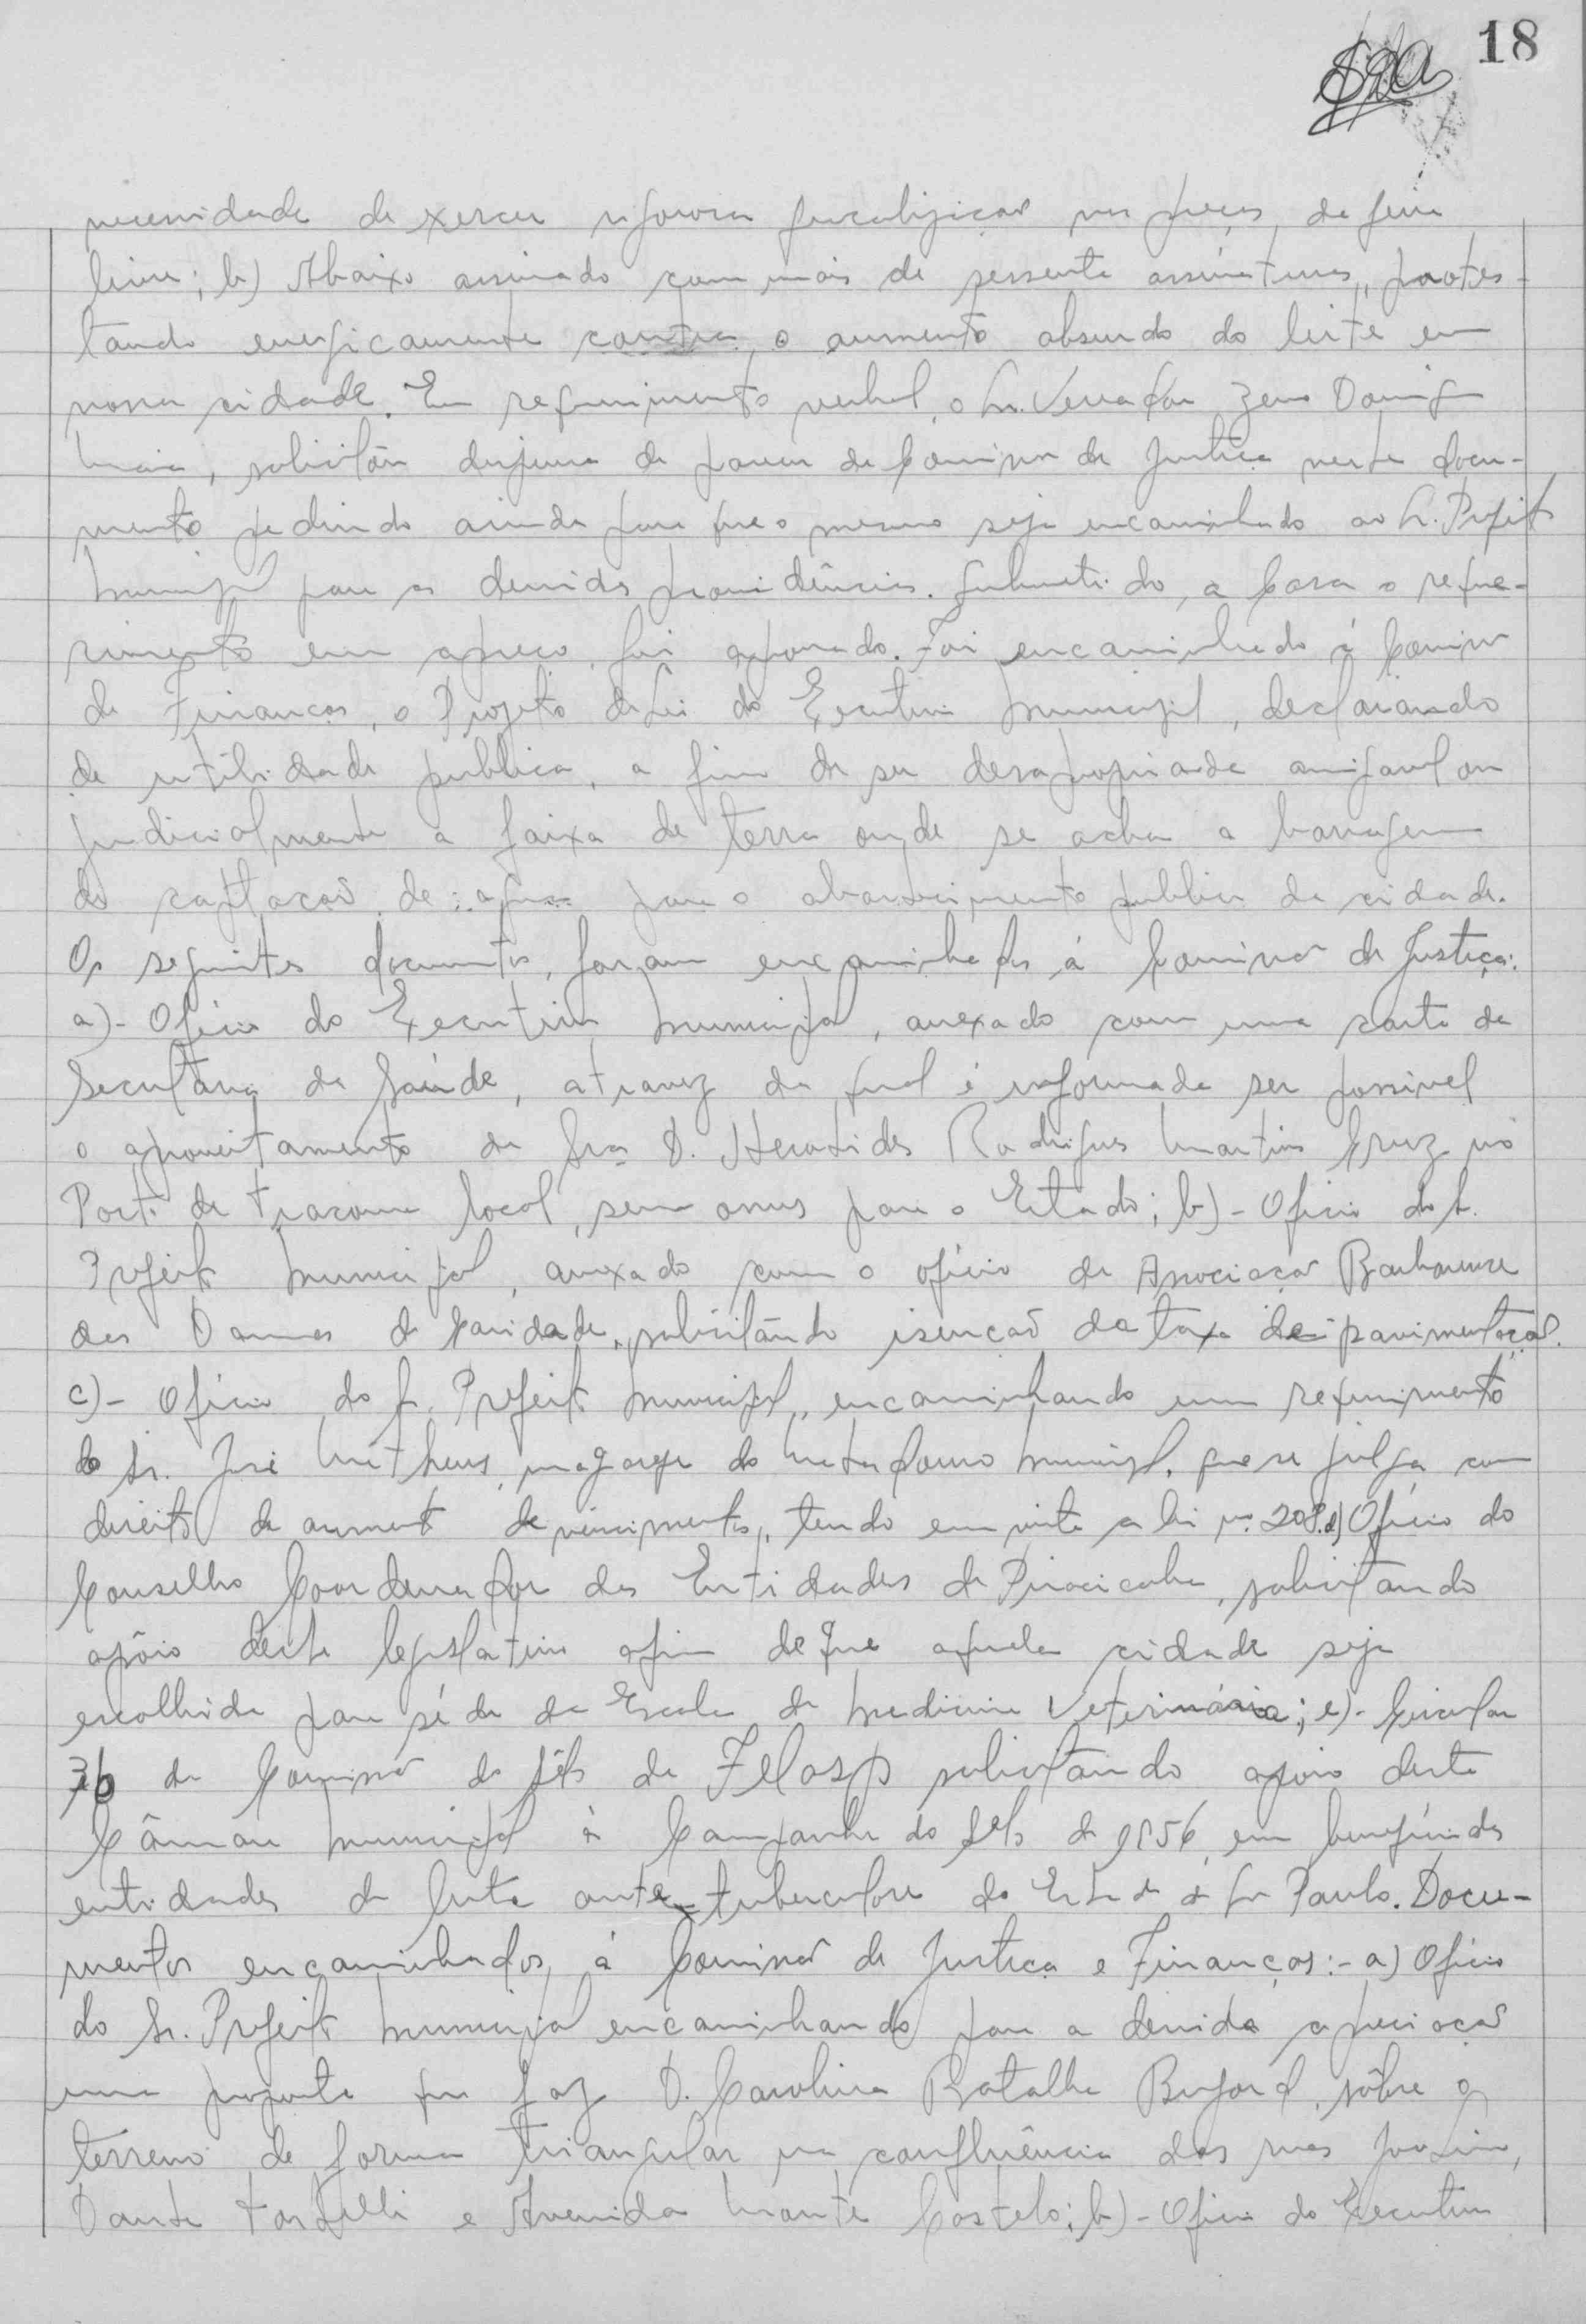 18
necessidade de exercer rigorosa fiscalização nos preços da feira
livre; b) Abaixo assinado com mais de sessenta assinaturas, protes-
tando energicamente contra, o aumento absurdo do leite em
nossa cidade. Em requerimento verbal, o Sr. Vereador Zeno
Maia, solicitou dispensa de parecer da Comissão de Justiça neste docu-
mento pedindo ainda para que o mesmo seja encaminhado ao Sr. Prefeito
Municipal para as devidas providências. Submetido, a Casa o reque-
rimento em apreço, foi aprovado. Foi encaminhado á Comissão
de Finanças, o Projeto de Lei do Executivo Municipal, declarando
de utilidade publica, a fim de ser desapropriada amigavel ou
judicialmente a faixa de terra onde se acha a barragem
de captação de agua para o abastecimento publico da cidade.
Os seguintes documentos, foram encaminhados á Comissão de Justiça:
a)- Oficio do Executivo Municipal, anexado com uma carta da
Secretaria da Saúde, atravez da qual é informada ser possivel
o aproveitamento da Sra. D. Rodrigues Martins Cruz no
Posto de Tracoma local, sem onus para o Estado; b)- Oficio do Sr.
Prefeito Municipal, anexado com o oficio da Associação Barbarense
das Damas de Caridade, solicitando isenção da taxa de pavimentação.
c)- Oficio do Sr. Prefeito Municipal, encaminhando um requerimento
do Sr. José Matheus, magarefe do Matadouro Municipal, que se julga com
direito de aumento de vencimentos, tendo em vista a lei nº 208. d) Oficio do
Conselho Coordenador das Entidades de Piracicaba, solicitando
apôio deste legislativo afim de que aquela cidade seja
escolhida para séde da Escola de Medicina Veterinária; e)- Circular
36 da Comissão do Sêlo da Felasp solicitando apoio desta
Câmara Municipal à Campanha do Sêlo de 1956, em beneficio das
entidades de luta ante-tuberculose do Estado de São Paulo. Docu-
mentos encaminhados, á Comissão de Justiça e Finanças:- a) Oficio
do Sr. Prefeito Municipal encaminhando para a devida apreciação
uma proposta que faz D. Carolina Batalha, sôbre o
terreno de forma triangular na confluência das ruas
Dante e Avenida Monte Castelo; b)- Oficio do Executivo